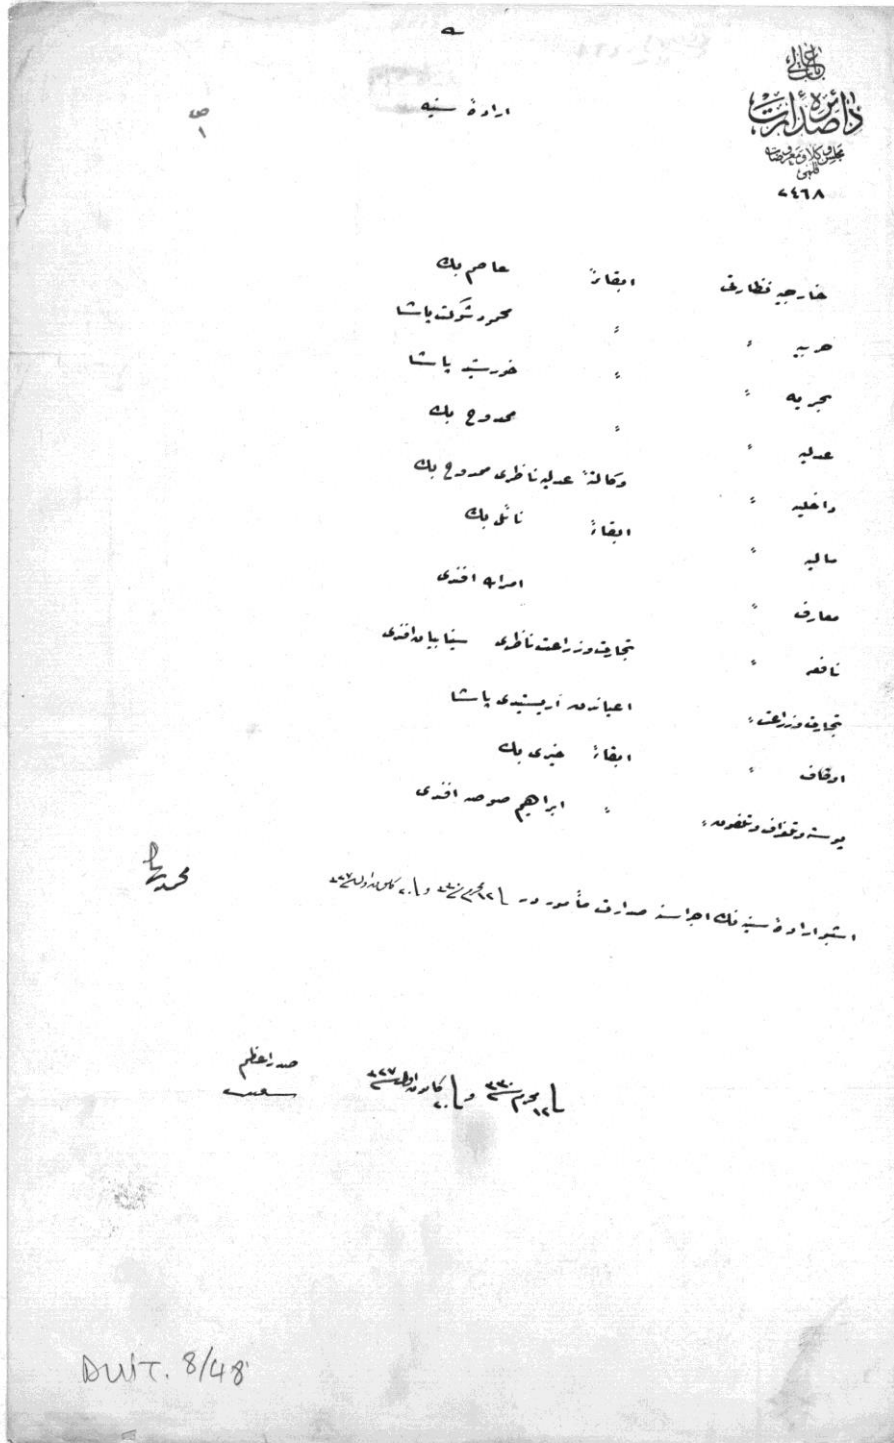 باب عالی
دائرۀ صدارت
مجلس وکلا و معروضات
قلمی
٢٤٦٨
ص
١
ارادۀ سنیه
خارجیه نظارتی ابقاءً عاصم بك
حربیه " " محمود شوکت پاشا
بحریه " " خورشید پاشا
عدلیه " " ممدوح بك
داخلیه " وکالةً عدلیه ناظری ممدوح بك
مالیه " ابقاءً نائل بك
معارف " امرالله افندی
نافعه " تجارت وزراعت ناظری سینابیان افندی
تجارت وزراعت " اعیاندن آریستیدی پاشا
اوقاف " ابقاءً خیری بك
پوسته وتلغراف وتلفون " " ابراهیم صوصه افندی
اشبو ارادۀ سنیه نك اجراسنه صدارت مأموردر ١٢ محرم سنه ٣٣٠ و ٢٠ کانون اول سنه ٣٢٧
محمد رشاد
صدر اعظم
سعید
١٢ محرم سنه ٣٣٠ و ٢٠ کانون اول سنه ٣٢٧
DUİT. 8/48